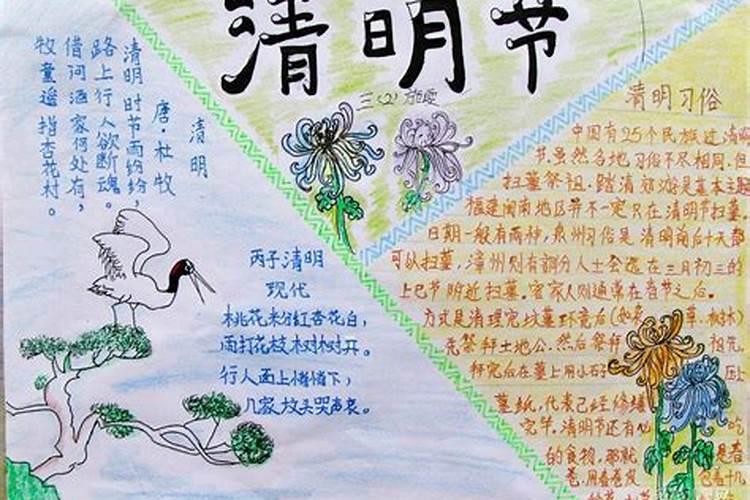 清明节
三(2)
清明
唐·杜牧
清明时节雨纷纷,
路上行人欲断魂。
借问酒家何处有,
牧童遥指杏花村。
丙子清明
现代
桃花粉红杏花白,
雨打花枝树树开。
行人面上悄悄下,
几家坟头哭声哀。
清明习俗
中国有25个民族过清明
节,虽然各地习俗不尽相同,但
扫墓祭祖、踏清郊游是基本主题
福建闽南地区并不一定只在清明节扫墓,
日期一般有两种,泉州习俗是清明前后十天都
可以扫墓,漳州则有部分人士会选在三月初三的
上巳节附近扫墓。客家人则通常在春节之后。
方式是清理完坟墓环境后(如 草、树木)
先祭拜土地公,然后祭拜 祖先,
拜完后在墓上用小石 压上
墓纸,代表己经修缮
完毕。清明节还有 的
的食物,那就 是春
卷,用春卷皮 包着